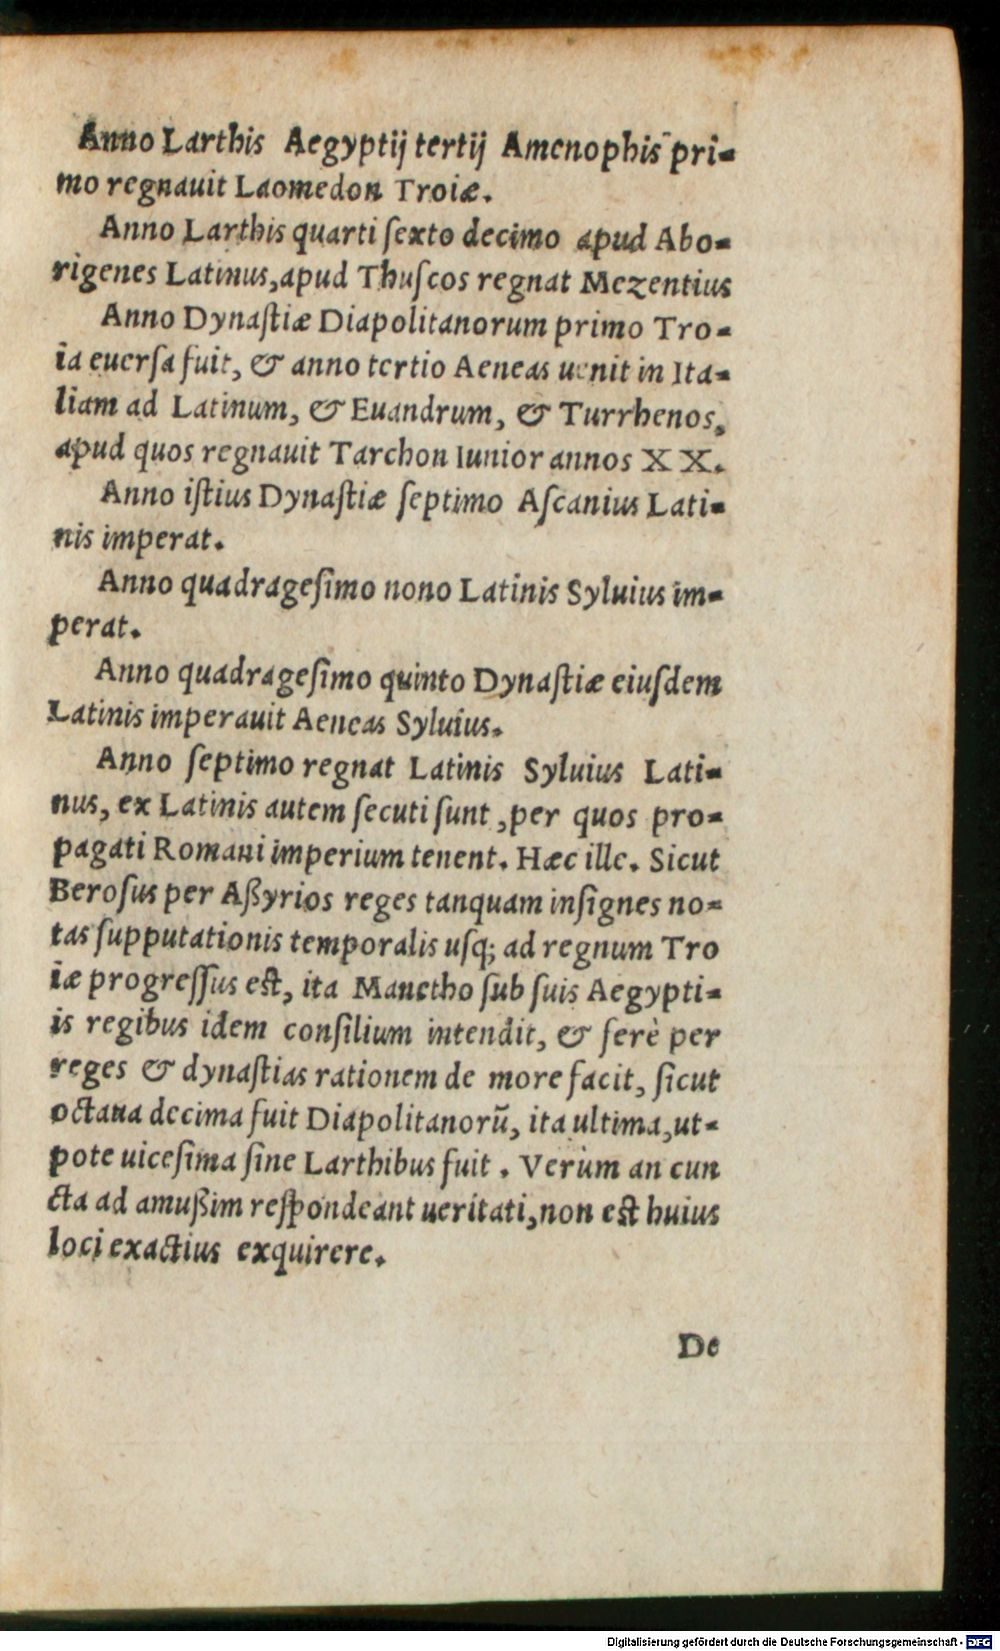 Anno Larthis Aegyptij tertij Amenophis pri-
mo regnauit Laomedon Troiæ.
Anno Larthis quarti ſexto decimo apud Abo-
rigenes Latinus, apud Thuſcos regnat Mezentius
Anno Dynaſtiæ Diapolitanorum primo Tro-
ia euerſa fuit, & anno tertio Aeneas uenit in Ita-
liam ad Latinum, & Euandrum, & Turrhenos,
apud quos regnauit Tarchon Iunior annos XX.
Anno iſtius Dynaſtiæ ſeptimo Aſcanius Lati-
nis imperat.
Anno quadrageſimo nono Latinis Syluius im-
perat.
Anno quadrageſimo quinto Dynaſtiæ eiuſdem
Latinis imperauit Aeneas Syluius.
Anno ſeptimo regnat Latinis Syluius Lati-
nus, ex Latinis autem ſecuti ſunt, per quos pro-
pagati Romani imperium tenent. Hæc ille. Sicut
Beroſus per Aßyrios reges tanquam inſignes no-
tas ſupputationis temporalis uſq; ad regnum Tro
iæ progreſſus eſt, ita Manetho ſub ſuis Aegypti-
is regibus idem conſilium intendit, & ferè per
reges & dynaſtias rationem de more facit, ſicut
octaua decima fuit Diapolitanorū, ita ultima, ut-
pote uiceſima ſine Larthibus fuit. Verùm an cun
cta ad amußim reſpondeant ueritati, non eſt huius
loci exactius exquirere.
De
Digitalisierung gefördert durch die Deutsche Forschungsgemeinschaft - DFG